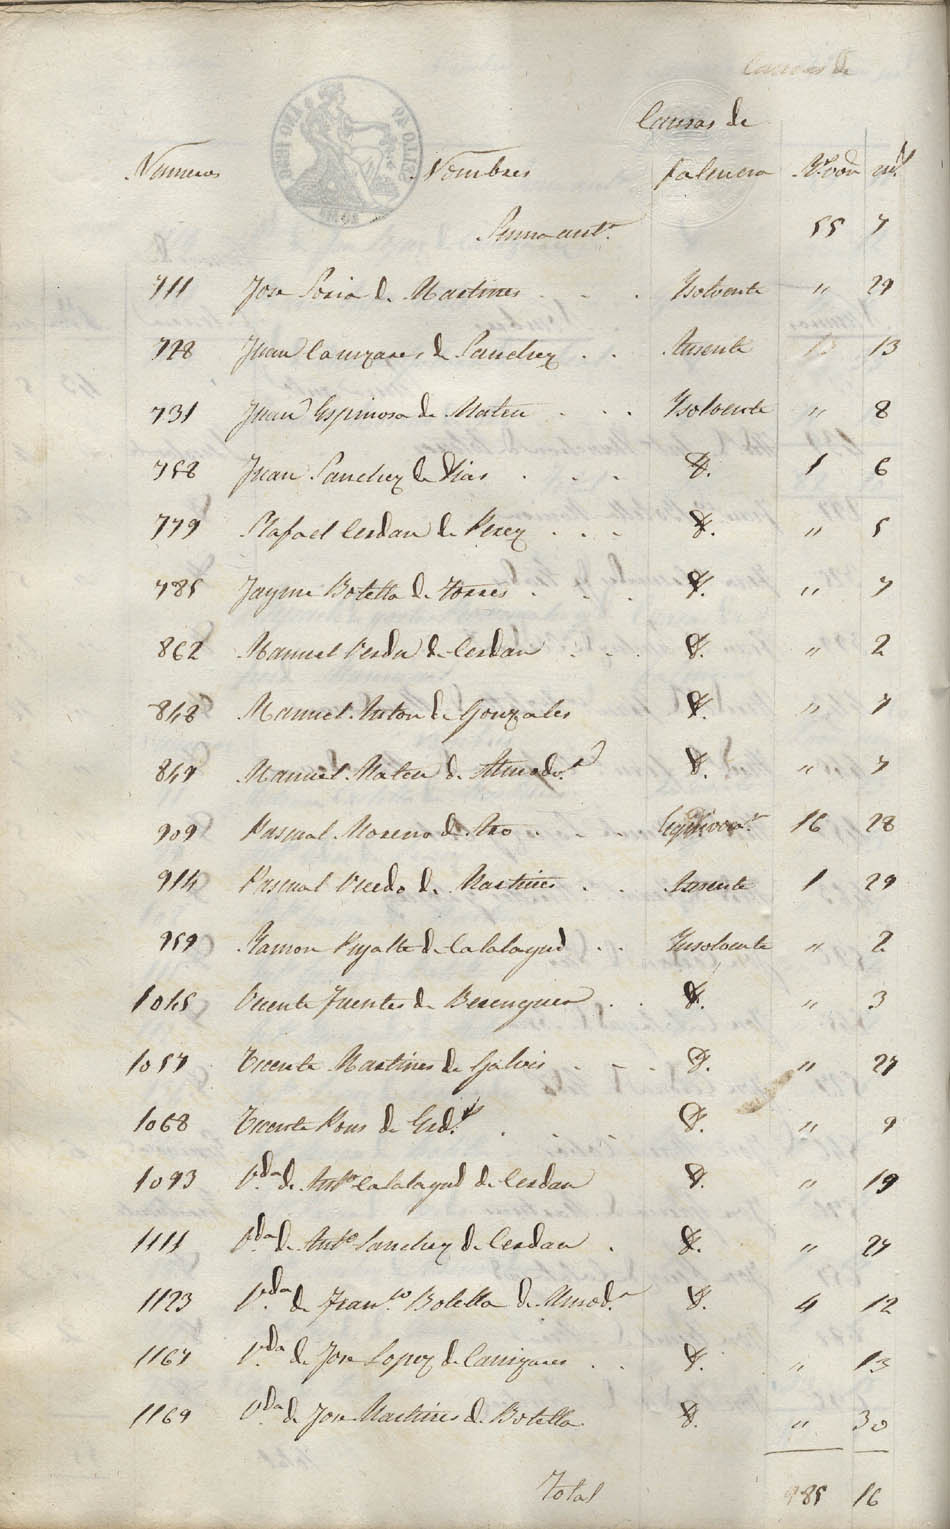 Causas de
Causas de
Numeros Nombres falencia Rs. von ms.
Suma antr. 55 7
711 Jose Soria de Martines Ysolvente " 29
728 Juan Canyzares de Sanchez Ausente 13
731 Juan Espinosa de Mateu Ysolvente " 8
758 Juan Sanchez de Dias Yd. 1 6
779 Rafael Cerdan de Perez Yd. " 5
785 Jayme Botella de Torres Yd. " 7
862 Manuel Verdu de Cerdan Yd. " 2
848 Manuel Anton de Gonzales Yd. " 7
849 Manuel Mateu de Almodr. Yd. " 7
909 Pascual Moreno de 16 28
914 Pascual Vicedo de Martines Ausente 1 29
959 Ramon Pujalte de Calatayud Ynsolvente " 2
1045 Vicente Fuentes de Berenguer Yd. " 3
1057 Vicente Martines de Galvis Yd. " 27
1068 Vicente Pons de Yd. " 9
1093 Vda. de Anto. Calatayud de Cerdan Yd. " 19
1111 Vda. de Anto. Sanchez de Cerdan Yd. " 27
1123 Vda. de Franco. Botella de Almodr. Yd. 4 12
1167 Vda. de Jose Lopez de Canizares Yd. " 13
1169 Vda. de Jose Martines de Botella Yd. " 30
Total 985 16